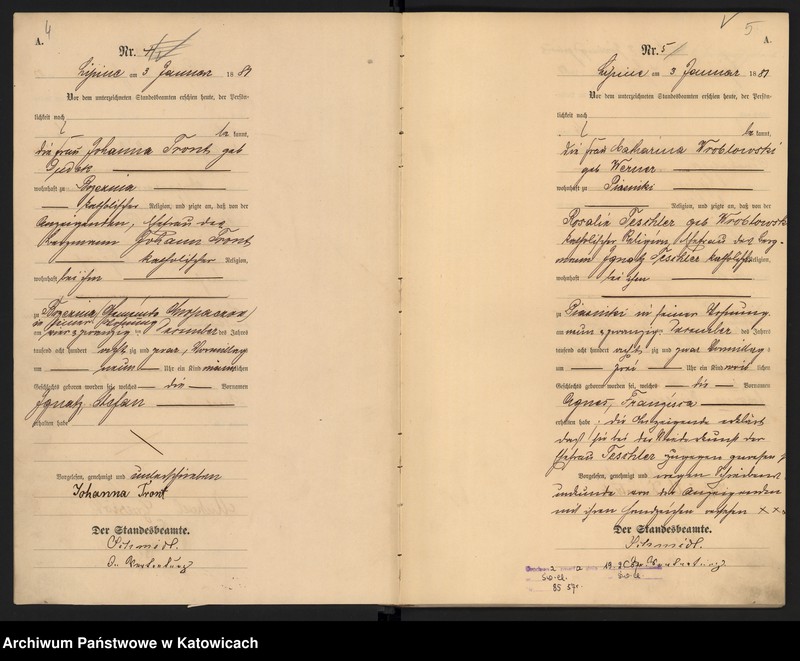 4
A.
Nr. 4
Lipine am 3 Januar 1881
Vor dem unterzeichneten Standesbeamten erschien heute, der Persön-
lichkeit nach
be kannt,
die Frau Johanna Front geb
wohnhaft zu
katholischer Religion, und zeigte an, daß von der
Anzeigenden, Ehefrau des
Johann Front
katholischer Religion,
wohnhaft bei ihm
zu
in seiner Wohnung
am vier u zwanzig Dezember des Jahres
tausend acht hundert acht zig und zwar Vormittag
um neun Uhr ein Kind männlichen
Geschlechts geboren worden sei, welches die Vornamen
Ignatz Stefan
erhalten habe
Vorgelesen, genehmigt und unterschrieben
Johanna Front
Der Standesbeamte.
Schmidt.
In Vertretung
5
A.
Nr. 5
Lipine am 3 Januar 1881
Vor dem unterzeichneten Standesbeamten erschien heute, der Persön-
lichkeit nach
be kannt,
die Frau Katharina Wroblowski
geb Werner
wohnhaft zu Piasniki
Religion, und zeigte an, daß von der
Rosalie Teschler geb Wroblowski
katholischer Religion, Ehefrau des Berg-
mann Ignatz Teschler katholischer Religion,
wohnhaft bei ihm
zu Piasniki in seiner Wohnung
am neun u zwanzig Dezember des Jahres
tausend acht hundert acht zig und zwar Vormittag
um zwei Uhr ein Kind weib lichen
Geschlechts geboren worden sei, welches die Vornamen
Agnes, Franzisca
erhalten habe; die Anzeigende erklärt
daß sie bei der Niederkunft der
Ehefrau Teschler zugegen gewesen
Vorgelesen, genehmigt und wegen Schreibens
unkunde von der Anzeigenden
mit ihren Handzeichen versehen × × ×
Der Standesbeamte.
Schmidt.
In Vertretung
Archiwum Państwowe w Katowicach